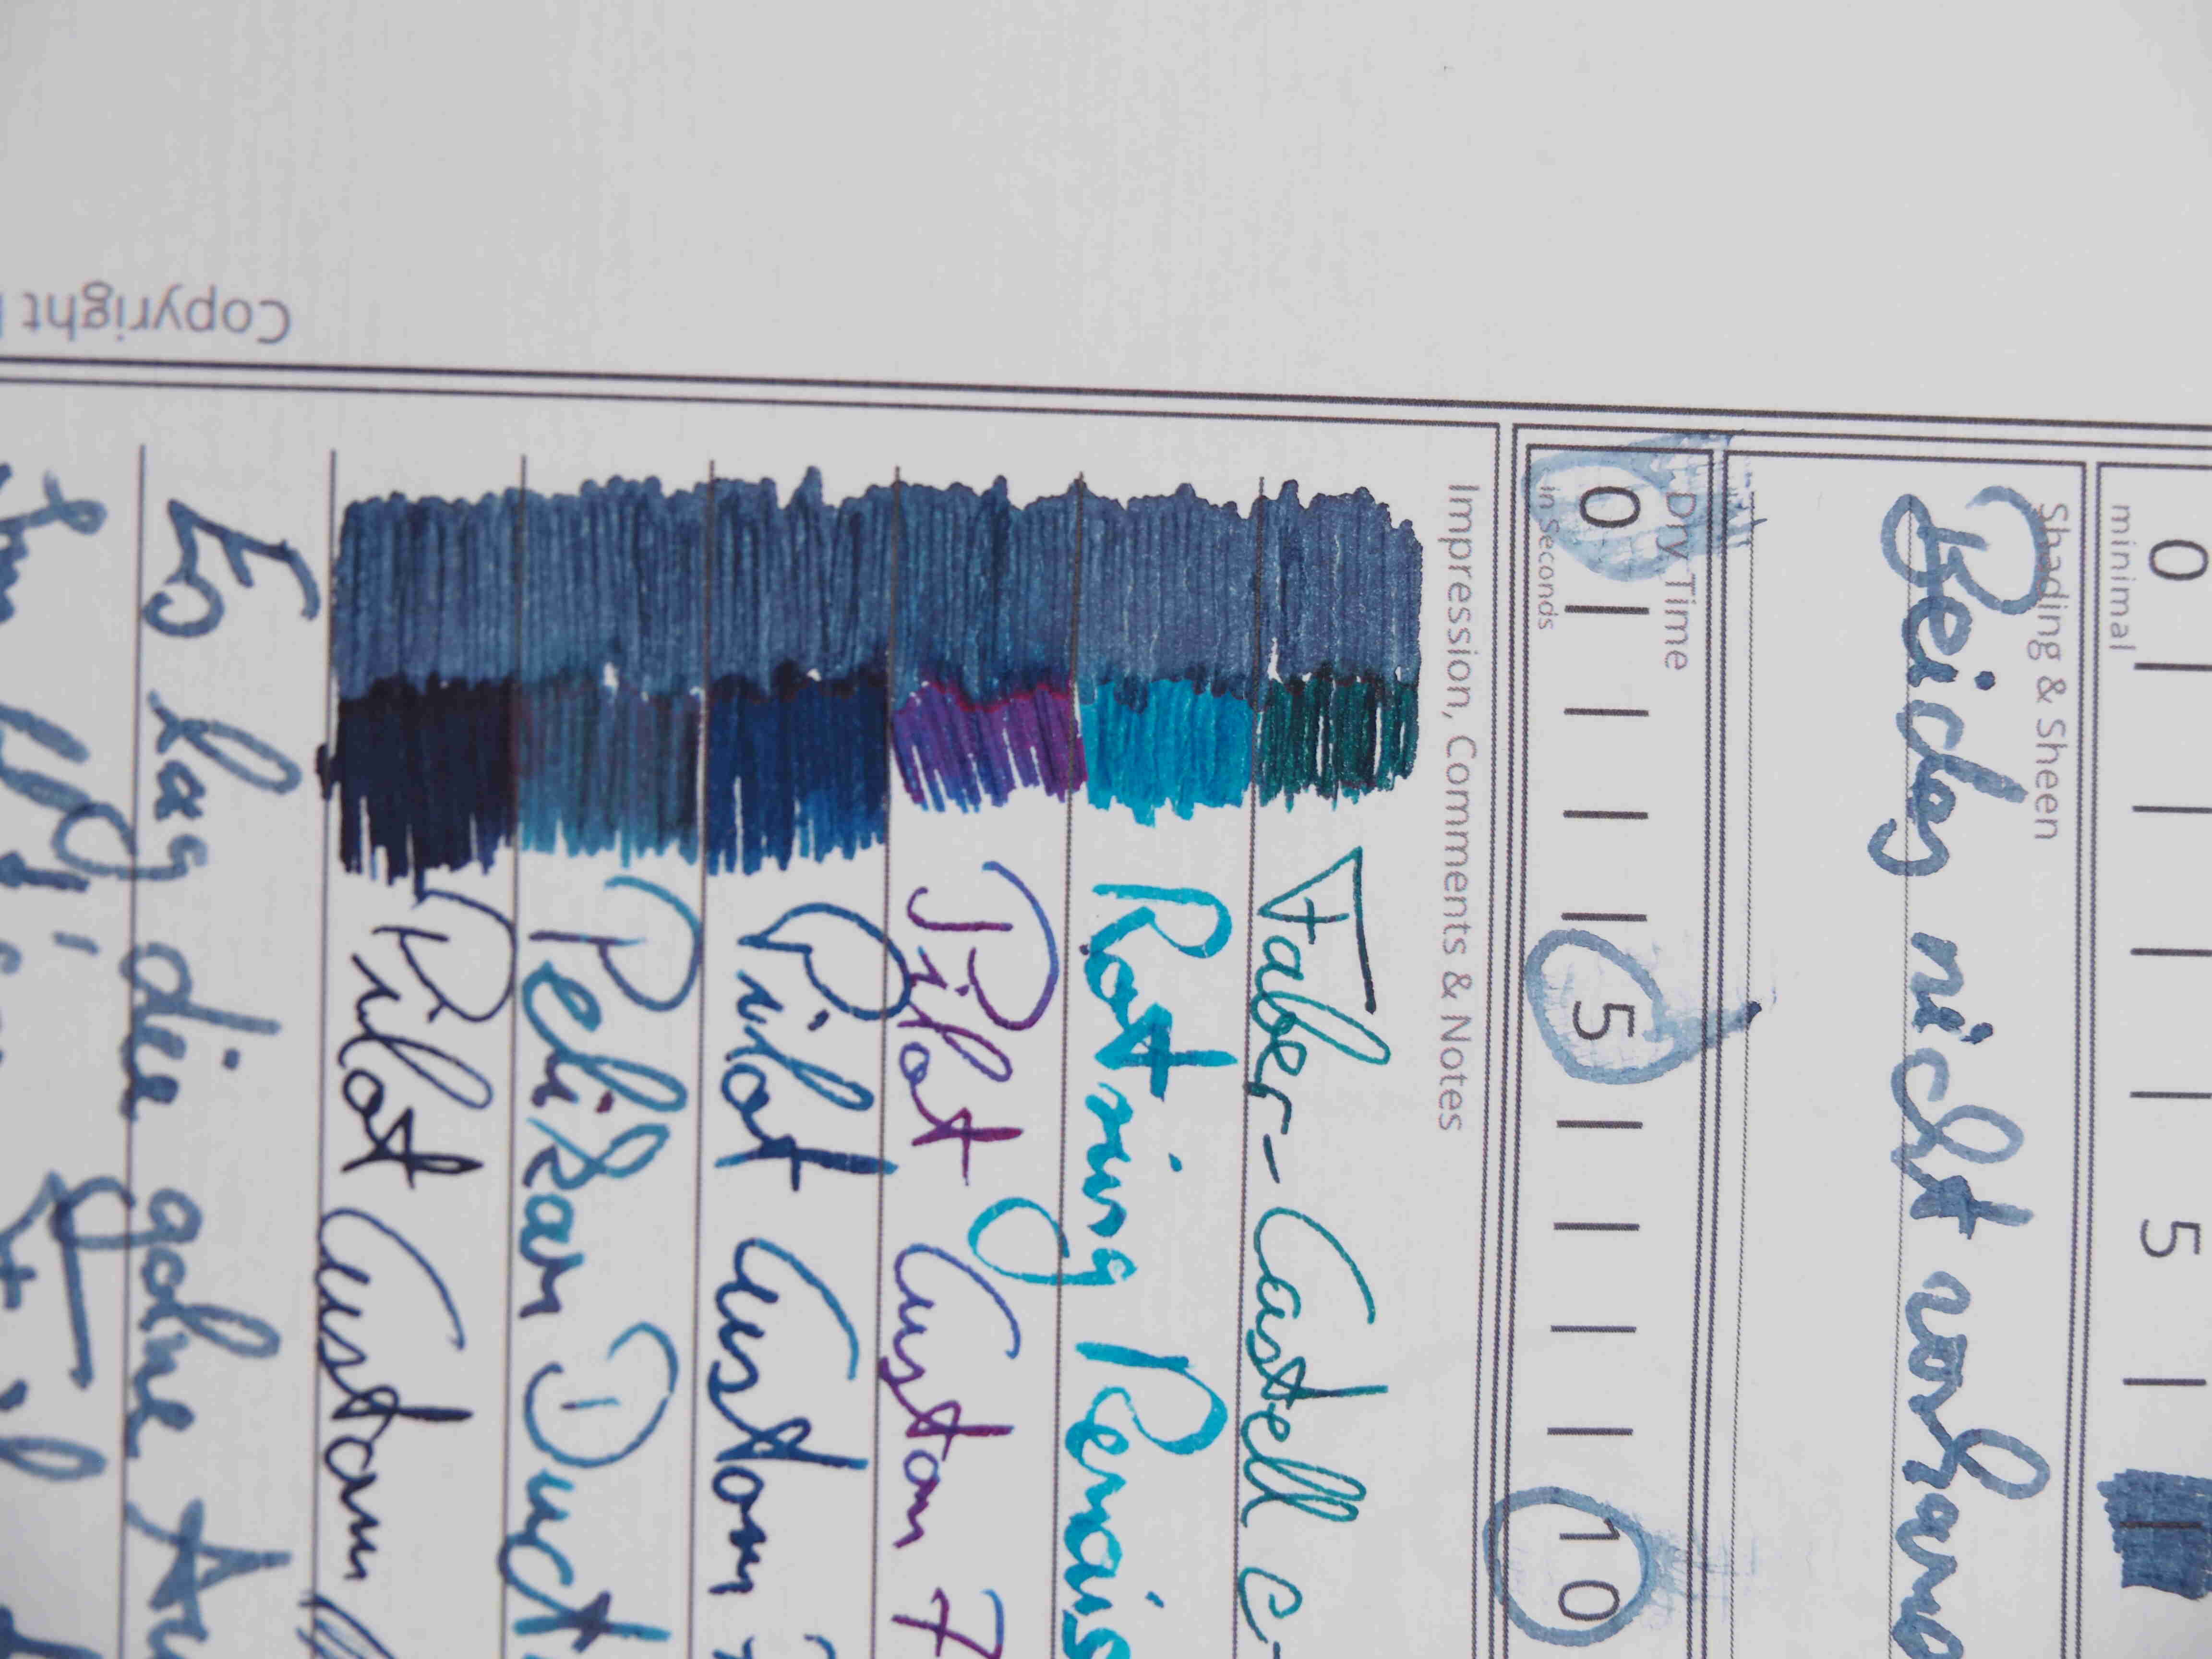 0 5
minimal
Shading & Sheen
Beides nicht vorhand
Dry Time
0 5 10
in Seconds
Impression, Comments & Notes
Faber-Castell e-
Rotring Renaiss
Pilot Custom 7
Pilot Custom
Pelikan Duct
Pilot Custom
Es lag die
Copyright